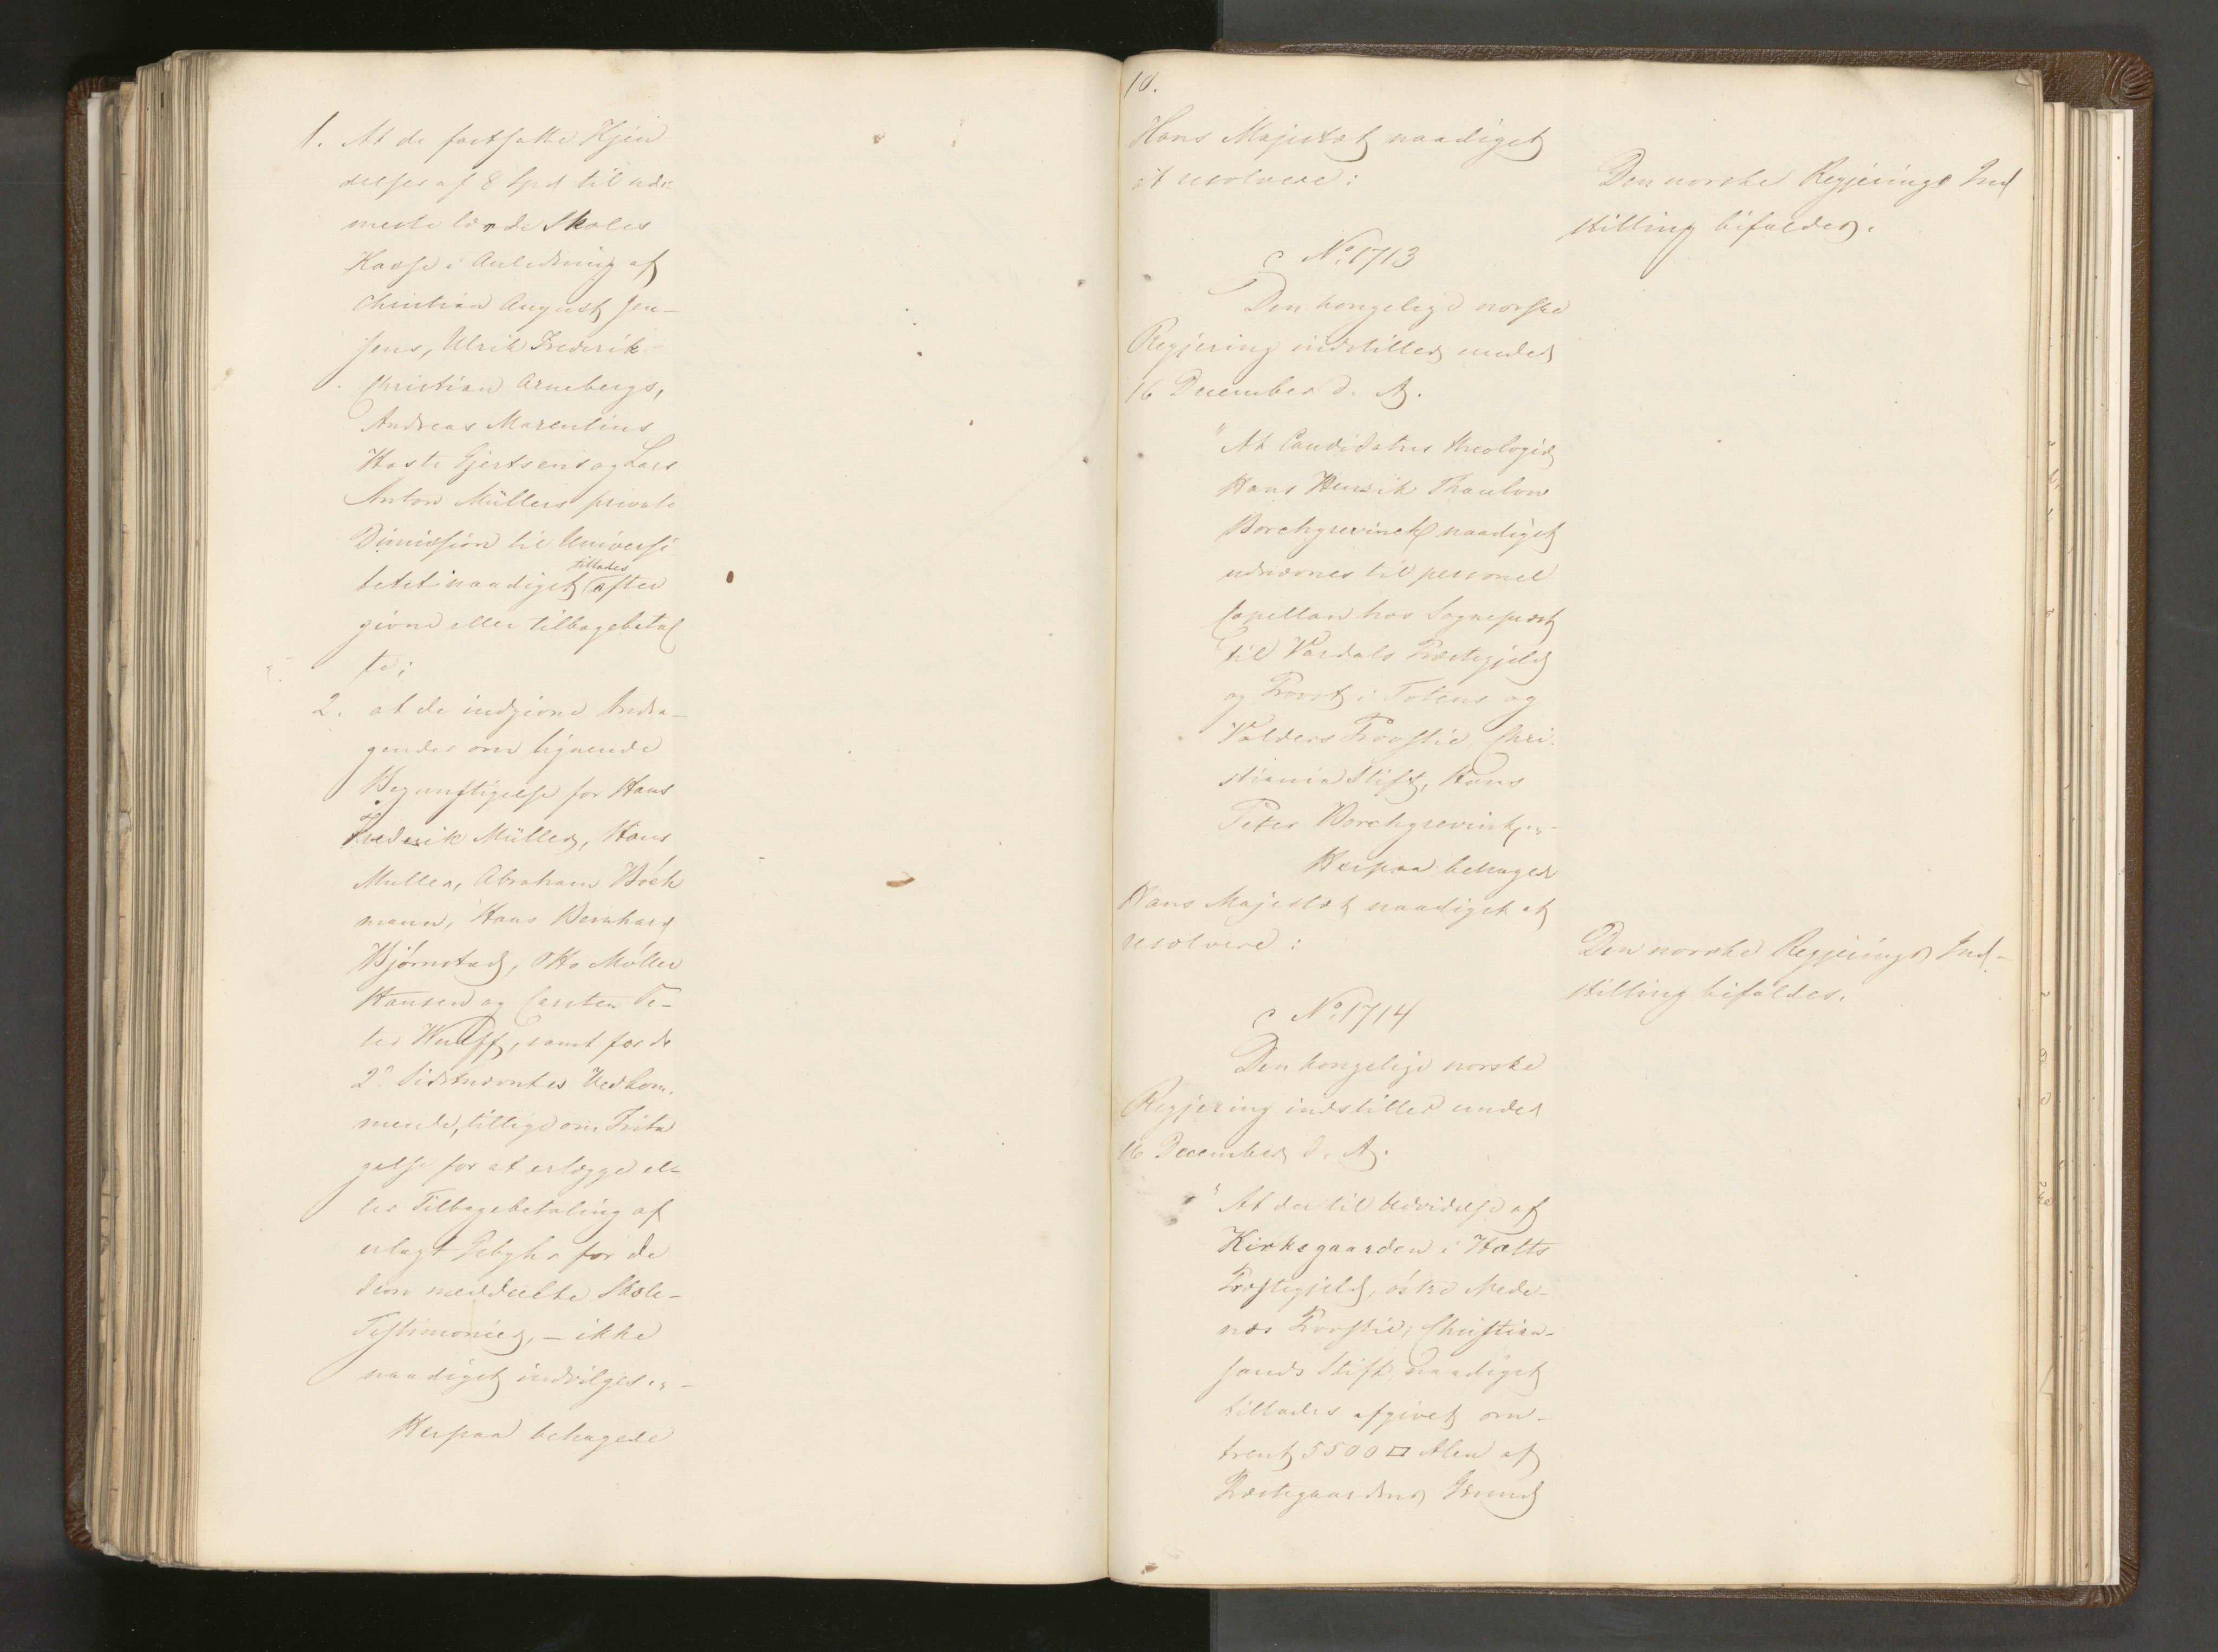 1. At de fastsatte Kjen
delser af 8 Spd til nær
meste lærde Skoles
Kasse i Anledning af
Christian August Jen-
sens, Ulrik Frederik
Christian Arnebergs,
Andreas Marentius
Hast Gjertsens og Lars
Anton Müllers private
Dimission til Universi
tetet naadigst tillades efter
givne eller tilbagebetal
te;
2. at de indgivne Andra-
gender om lignende
Begunstigelse for Hans
Frederik Müller, Hans
Muller, Abraham Böck
mann, Hans Bernhard
Bjørnstad, Otto Møller
Hansen og Carsten Pe-
ter Wulff, samt for de
2de Sidstnævntes Vedkom-
mende, tillige om Frita
gelse for at erlægge el-
ler Tilbagebetaling af
erlagt Gebyhr for de
dem meddeelte Skole-
Testimonier, - ikke
naadigst indvilges." -
Herpaa behagede
10.
Hans Majestæt naadigst
at resolvere:
Den norske Regjerings Ind
stilling bifaldes.
No. 1713
Den kongelige norske
Regjering indstiller under
16 December d. A.
"At Candidatus theologiæ
Hans Henrik Thaulow
Borchgrevinck naadigst
udnævnes til personel
Capellan hos Sognepræst
til Vardals Præstegjeld
og Provst i Totens og
Valders Provstie, Chri-
stiania Stift, Hans
Peter Borchgrevink." -
Herpaa behager
Hans Majestæt naadigst at
resolvere:
Den norske Regjerings Ind-
stilling bifaldes.
No. 1714
Den kongelige norske
Regjering indstiller under
16 December d. A.
"At der til Udvidelse af
Kirkegaarden i Holts
Præstegjeld, østre Nede-
næs Provstie, Christian-
sands Stift, naadigst
tillades afgivet om-
trent 5500 □ Alen af
Præstegaardens Grund